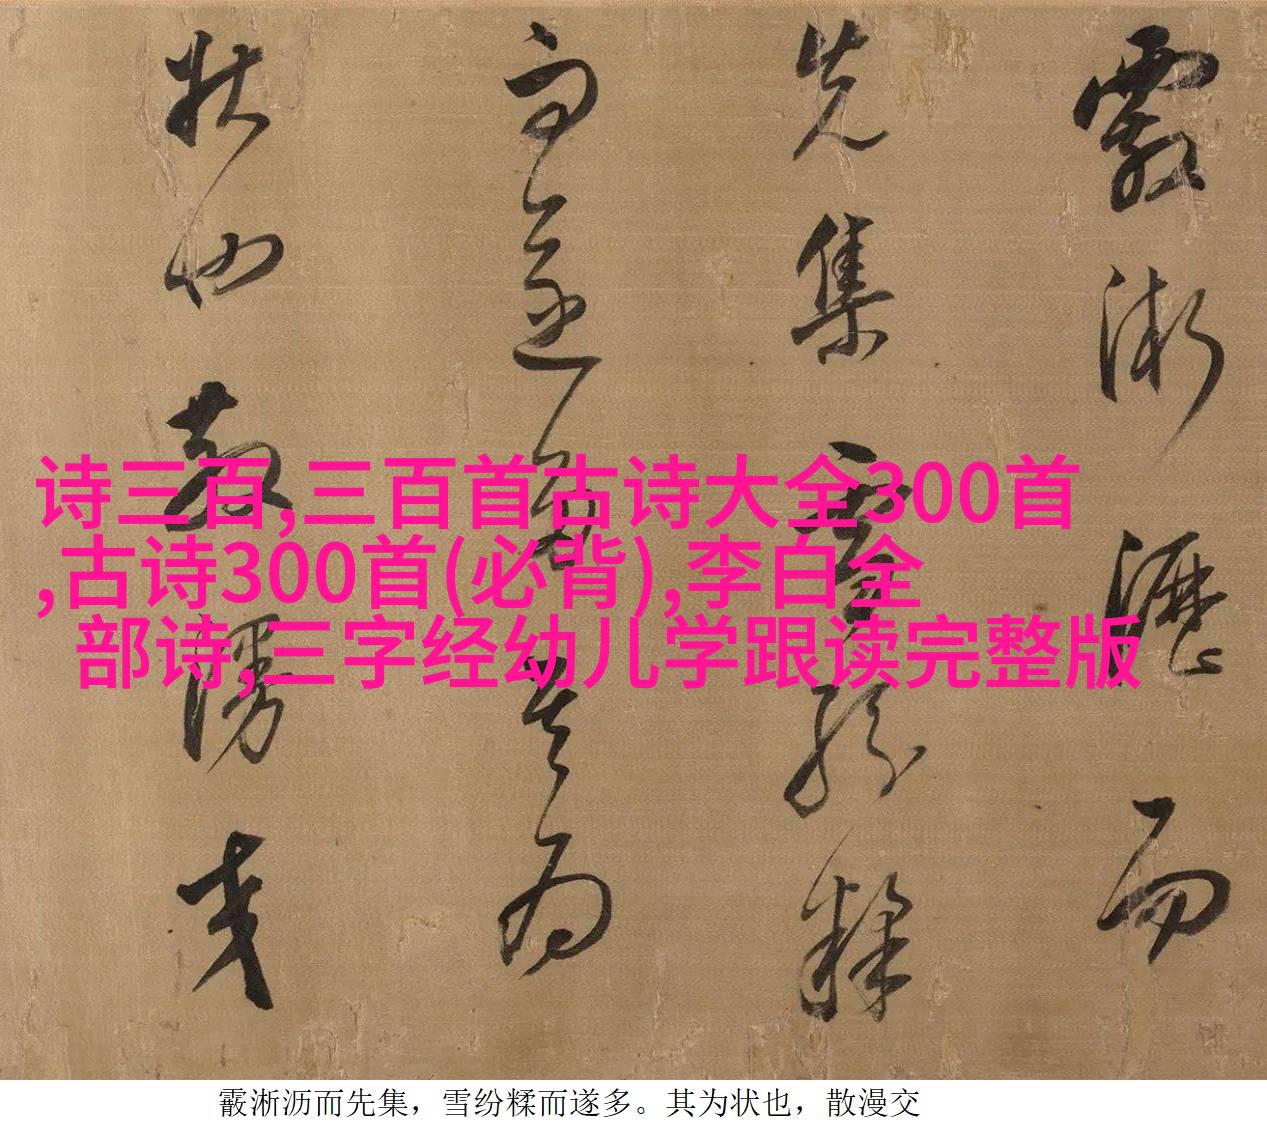 霰淅瀝而
先集雪紛糅
而遂多其為
狀也散漫交
诗三百,三百首古诗大全300首
,古诗300首(必背),李白全
部诗,三字经幼儿学跟读完整版
霰淅沥而先集，雪纷糅而遂多。其为状也，散漫交